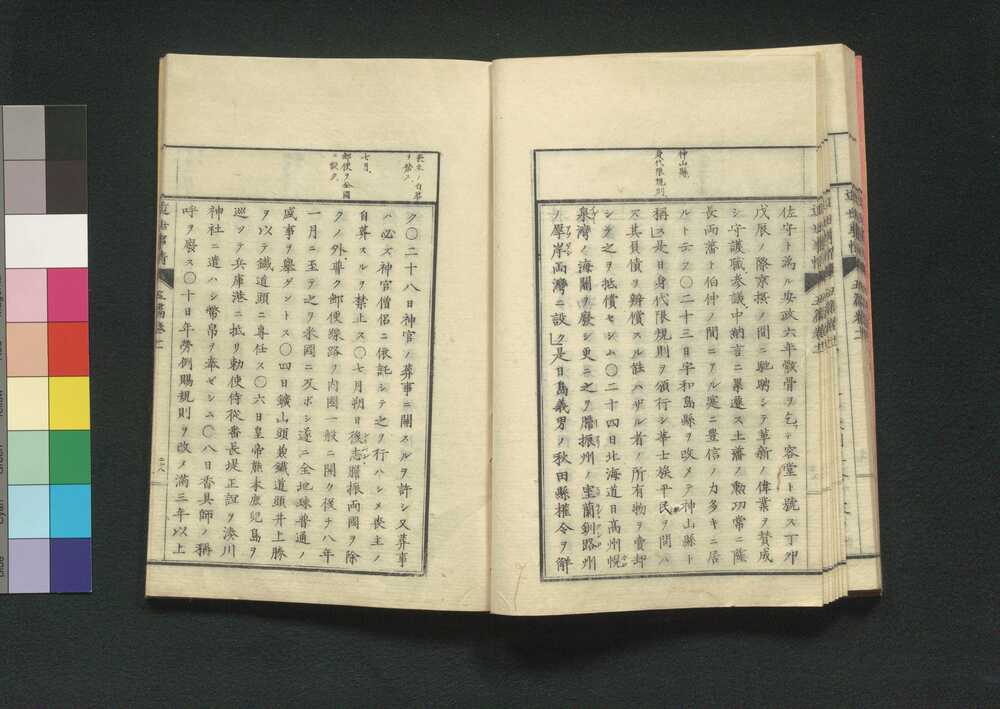 神山縣
身代限規則
佐守ト爲ル安政六年骸骨ヲ乞テ容堂ト號ス丁卯
戊辰ノ際京摂ノ間ニ馳聘シテ革新ノ偉業ヲ賛成
シ守護職参議中納言ニ累遷ス土藩ノ勲功常ニ薩
長両藩ト伯仲ノ間ニアル寔ニ豊信ノ力多キニ居
ルト云フ〇二十三日宇和島縣ヲ改メテ神山縣ト
稱ス是日身代限規則ヲ頒行シ華士族平民ヲ問ハ
ズ其負債ヲ辨償スル能ハザル者ノ所有物ヲ賣却
シテ之ヲ抵償セシム〇二十四日北海道日高州幌
泉灣ノ海關ヲ廢シ更ニ之ヲ膽振州ノ室蘭釧路州
ノ厚岸両灣ニ設ク是日島義勇ノ秋田縣權令ヲ解
喪主ノ自葬
ヲ禁ス
七月
郵便ヲ全國
ニ設ク
ク〇二十八日神官ノ葬事ニ關スルヲ許シ又葬事
ハ必ズ神官僧侶ニ依託シテ之ヲ行ハシメ喪主ノ
自葬スルヲ禁止ス〇七月朔日後志膽振両國ヲ除
クノ外普ク郵便線路ヲ内國一般ニ開ク後チ八年
一月ニ至テ之ヲ米國ニ及ボシ遂ニ全地球普通ノ
盛事ヲ擧ゲントス〇四日鑛山頭兼鐵道頭井上勝
ヲ以テ鐵道頭ニ専任ス〇六日皇帝熊本鹿兒島ヲ
巡ツテ兵庫港ニ抵リ勅使侍從番長堤正誼ヲ湊川
神社ニ遣ハシ幣帛ヲ奉ゼシム〇八日香具師ノ稱
呼ヲ廢ス〇十日年勞例賜規則ヲ改メ滿三年以上
近世事情
五篇巻十一
二八